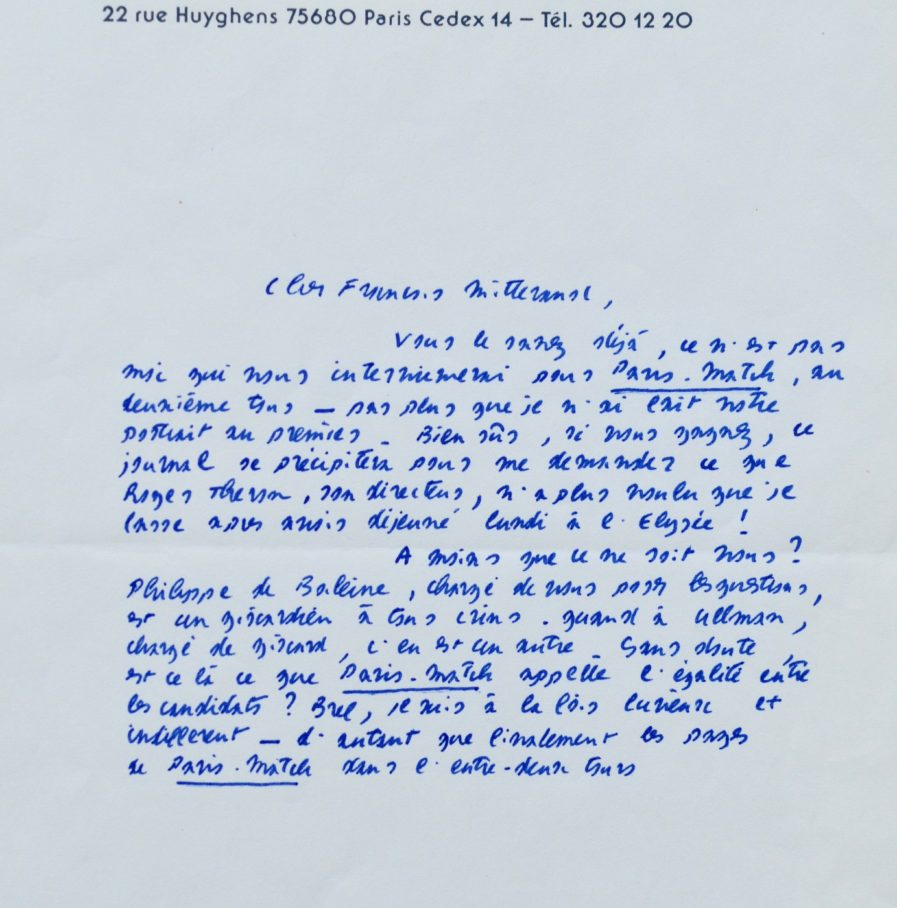 22 rue Huyghens 75680 Paris Cedex 14 – Tél. 320 12 20
Cher François Mitterand,
Vous le savez déjà, ce n'est pas
moi qui vous interviewerai pour Paris-Match, au
deuxième tour — pas plus que je n'ai fait votre
portrait au premier. Bien sûr, si vous gagnez, ce
journal se précipitera pour me demander ce que
Roger Theron, son directeur, n'a plus voulu que je
fasse après avoir déjeuné lundi à l'Elysée !
A moins que ce ne soit vous ?
Philippe de Baleine, chargé de vous poser les questions,
est un giscardien à tous crins. Quand à Ullman,
chargé de Giscard, c'en est un autre. Sans doute
est ce là ce que Paris-Match appelle l'égalité entre
les candidats ? Bref, je suis à la fois furieux et
indifférent — d'autant que finalement les pages
de Paris-Match dans l'entre-deux tours